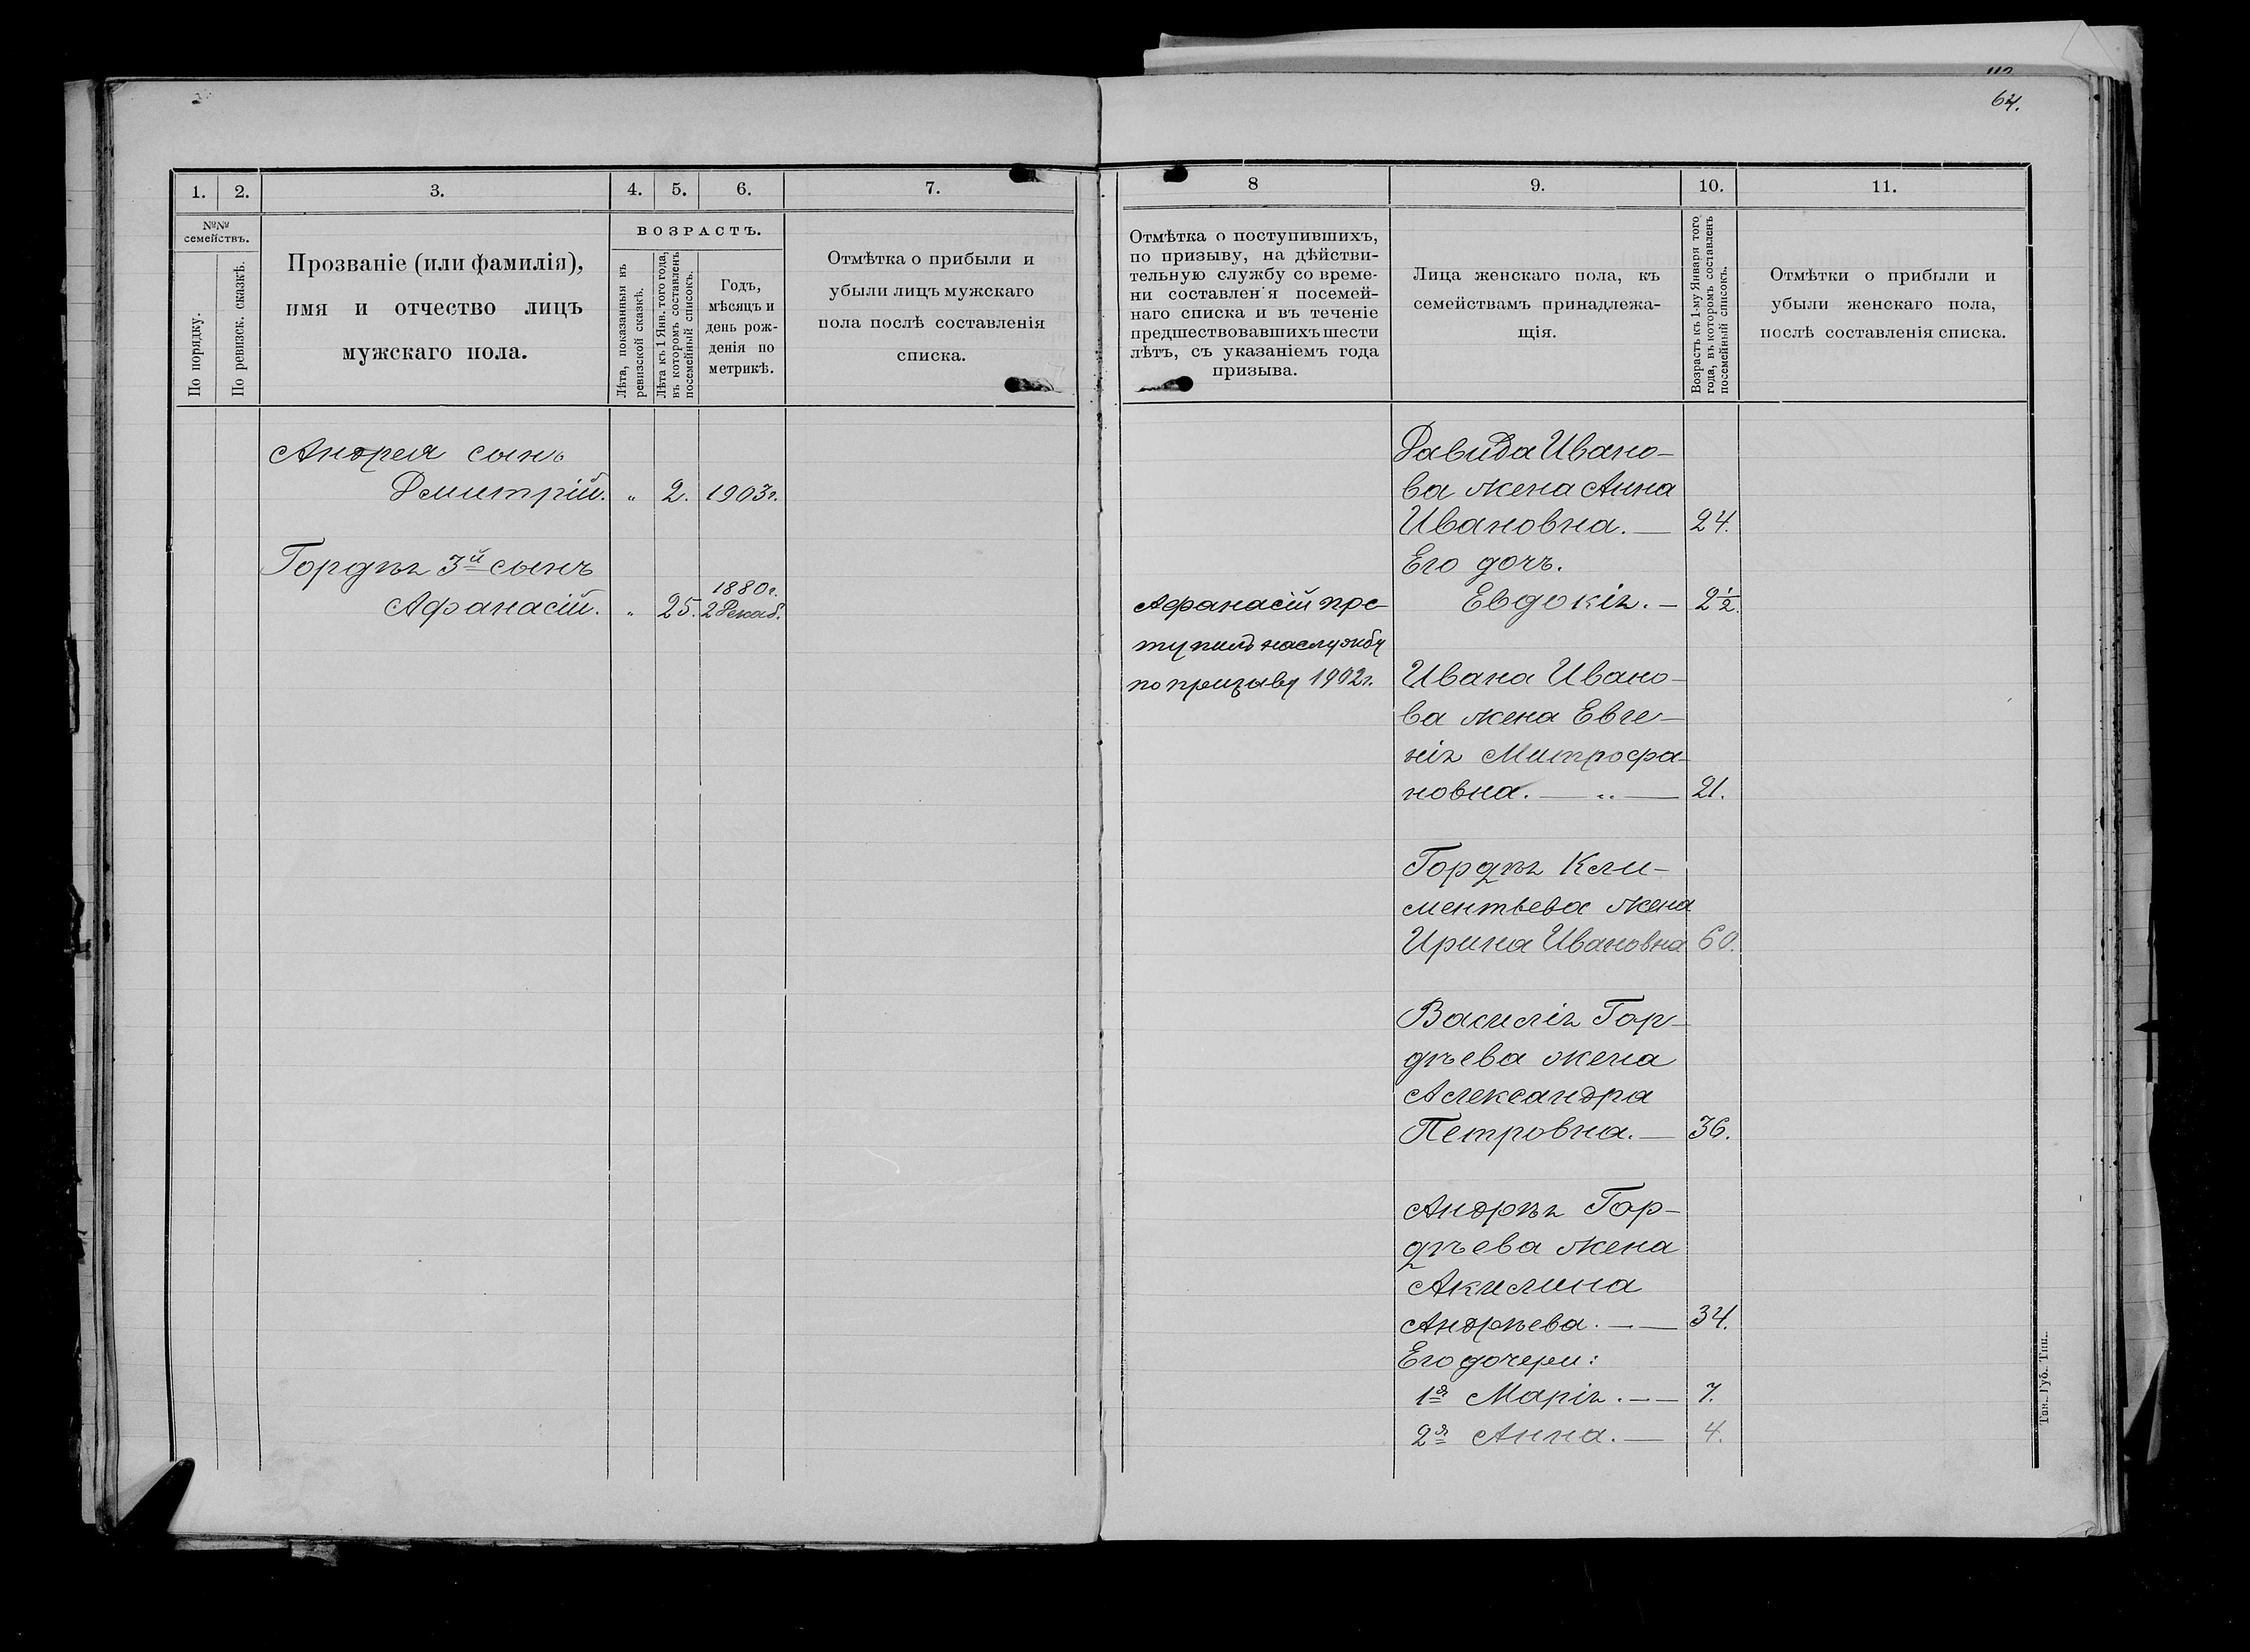 64.
1.
2.
3.
4.
5.
6.
7.
№№
семействъ.
По порядку.
По ревизск. сказкѣ.
Прозваніе (или фамилія),
имя и отчество лицъ
мужскаго пола.
ВОЗРАСТЪ.
Лѣта, показанныя въ
ревизской сказкѣ.
Лѣта къ 1 Янв. того года,
въ которомъ составленъ
посемейный списокъ.
Годъ,
мѣсяцъ и
день рож-
денія по
метрикѣ.
Отмѣтка о прибыли и
убыли лицъ мужскаго
пола послѣ составленія
списка.
Андрея сынъ
Дмитрій. „ 2. 1903г.
Гордѣя 3й сынъ
Афанасій. „ 25. 1880г.
2 Декаб.
8
9.
10.
11.
Отмѣтка о поступившихъ,
по призыву, на дѣйстви-
тельную службу со време-
ни составленія посемей-
наго списка и въ теченіе
предшествовавшихъ шести
лѣтъ, съ указаніемъ года
призыва.
Лица женскаго пола, къ
семействамъ принадлежа-
щія.
Возрастъ къ 1-му Января того
года, въ которомъ составленъ
посемейный списокъ.
Отмѣтки о прибыли и
убыли женскаго пола,
послѣ составленія списка.
Афанасій пос-
тупилъ на службу
по призыву 1902г.
Давида Ивано-
ва жена Анна
Ивановна. — 24.
Его дочь.
Евдокія. — 2½.
Ивана Ивано-
ва жена Евге-
нія Митрофа-
новна. — „ — 21.
Гордѣя Кли-
ментьева жена
Ирина Ивановна 60.
Василія Гор-
дѣева жена
Александра
Петровна. — 36.
Андрѣя Гор-
дѣева жена
Акилина
Андрѣева. — — 34.
Его дочери:
1я Марія. — — 7.
2я Анна. — 4.
Тав. Губ. Тип.